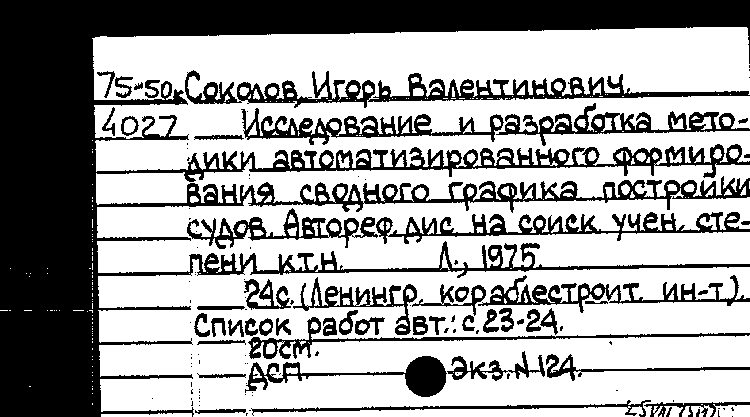 75-50к Соколов, Игорь Валентинович.
4027 Исследование и разработка мето-
дики автоматизированного формиро-
вания сводного графика постройки
судов. Автореф. дис. на соиск. учен. сте-
пени к.т.н. Л., 1975.
24с. (Ленингр. кораблестроит. ин-т).
Список работ авт.: с.23-24.
20см.
ДСП. Экз. N 124.